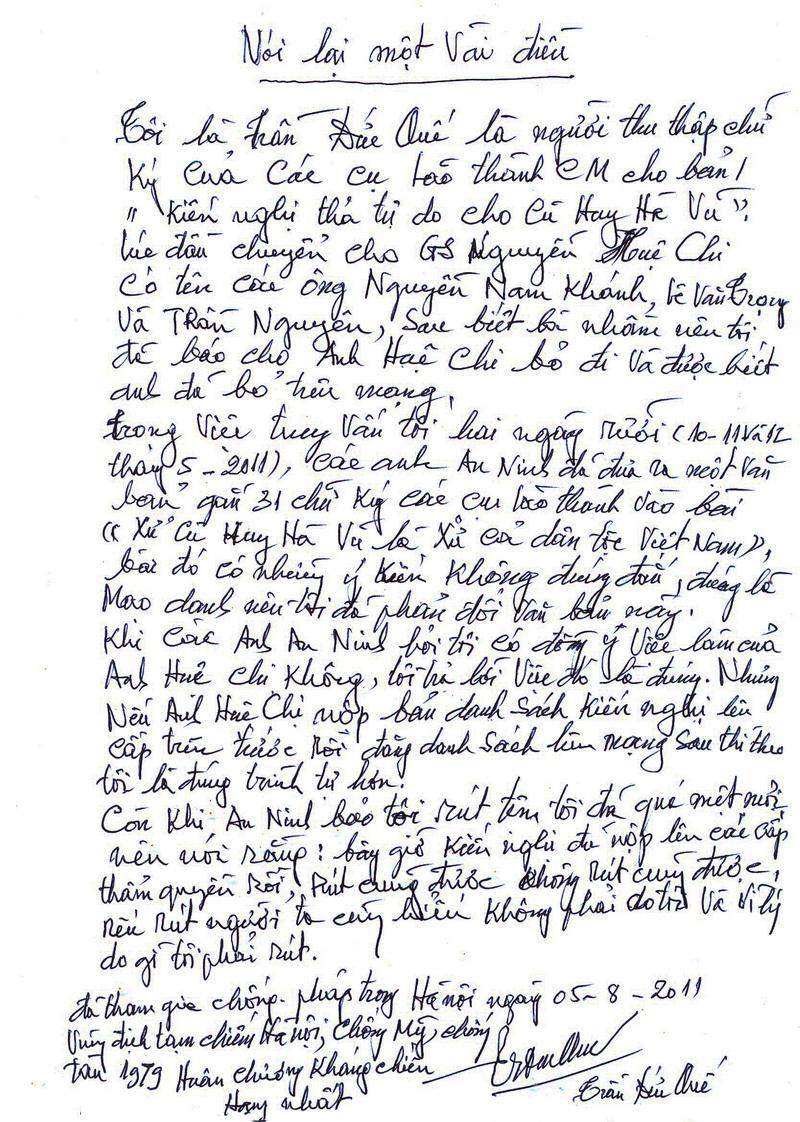 Nói lại một vài điều
Tôi là Trần Đức Quế là người thu thập chữ
ký của các cụ lão thành CM cho bản
"Kiến nghị thả tự do cho Cù Huy Hà Vũ".
lúc đầu chuyển cho GS Nguyễn Huệ Chi
có tên các ông Nguyễn Nam Khánh, Lê Văn Trọng
và Trần Nguyên, sau biết bị nhầm nên tôi
đã báo cho Anh Huệ Chi bỏ đi và được biết
anh đã bỏ trên mạng,
trong việc truy vấn tôi hai ngày rưỡi (10-11 và 12
tháng 5-2011), các anh An Ninh đã đưa ra một văn
bản gắn 31 chữ ký các cụ lão thành vào bài
"Xử Cù Huy Hà Vũ là Xử cả dân tộc Việt Nam",
bài đó có những ý kiến không đúng đắn, đúng là
Mạo danh nên tôi đã phản đối văn bản này.
Khi các Anh An Ninh hỏi tôi có đồng ý việc làm của
Anh Huệ Chi không, tôi trả lời việc đó là đúng. Nhưng
Nếu Anh Huệ Chi nộp bản danh sách kiến nghị lên
cấp trên trước rồi đăng danh sách lên mạng sau thì theo
tôi là đúng trình tự hơn.
Còn khi An Ninh bảo tôi rút tên tôi đã quá mệt mỏi
nên nói rằng: bây giờ kiến nghị đã nộp lên các cấp
thẩm quyền rồi, rút cũng được không rút cũng được,
nếu rút người ta cũng hiểu không phải do tôi và vì lý
do gì tôi phải rút.
Hà Nội ngày 05-8-2011
đã tham gia chống pháp trong
vùng địch tạm chiếm Hà Nội, chống Mỹ, chống
tàu 1979 Huân chương kháng chiến
Hạng nhất
Trần Đức Quế